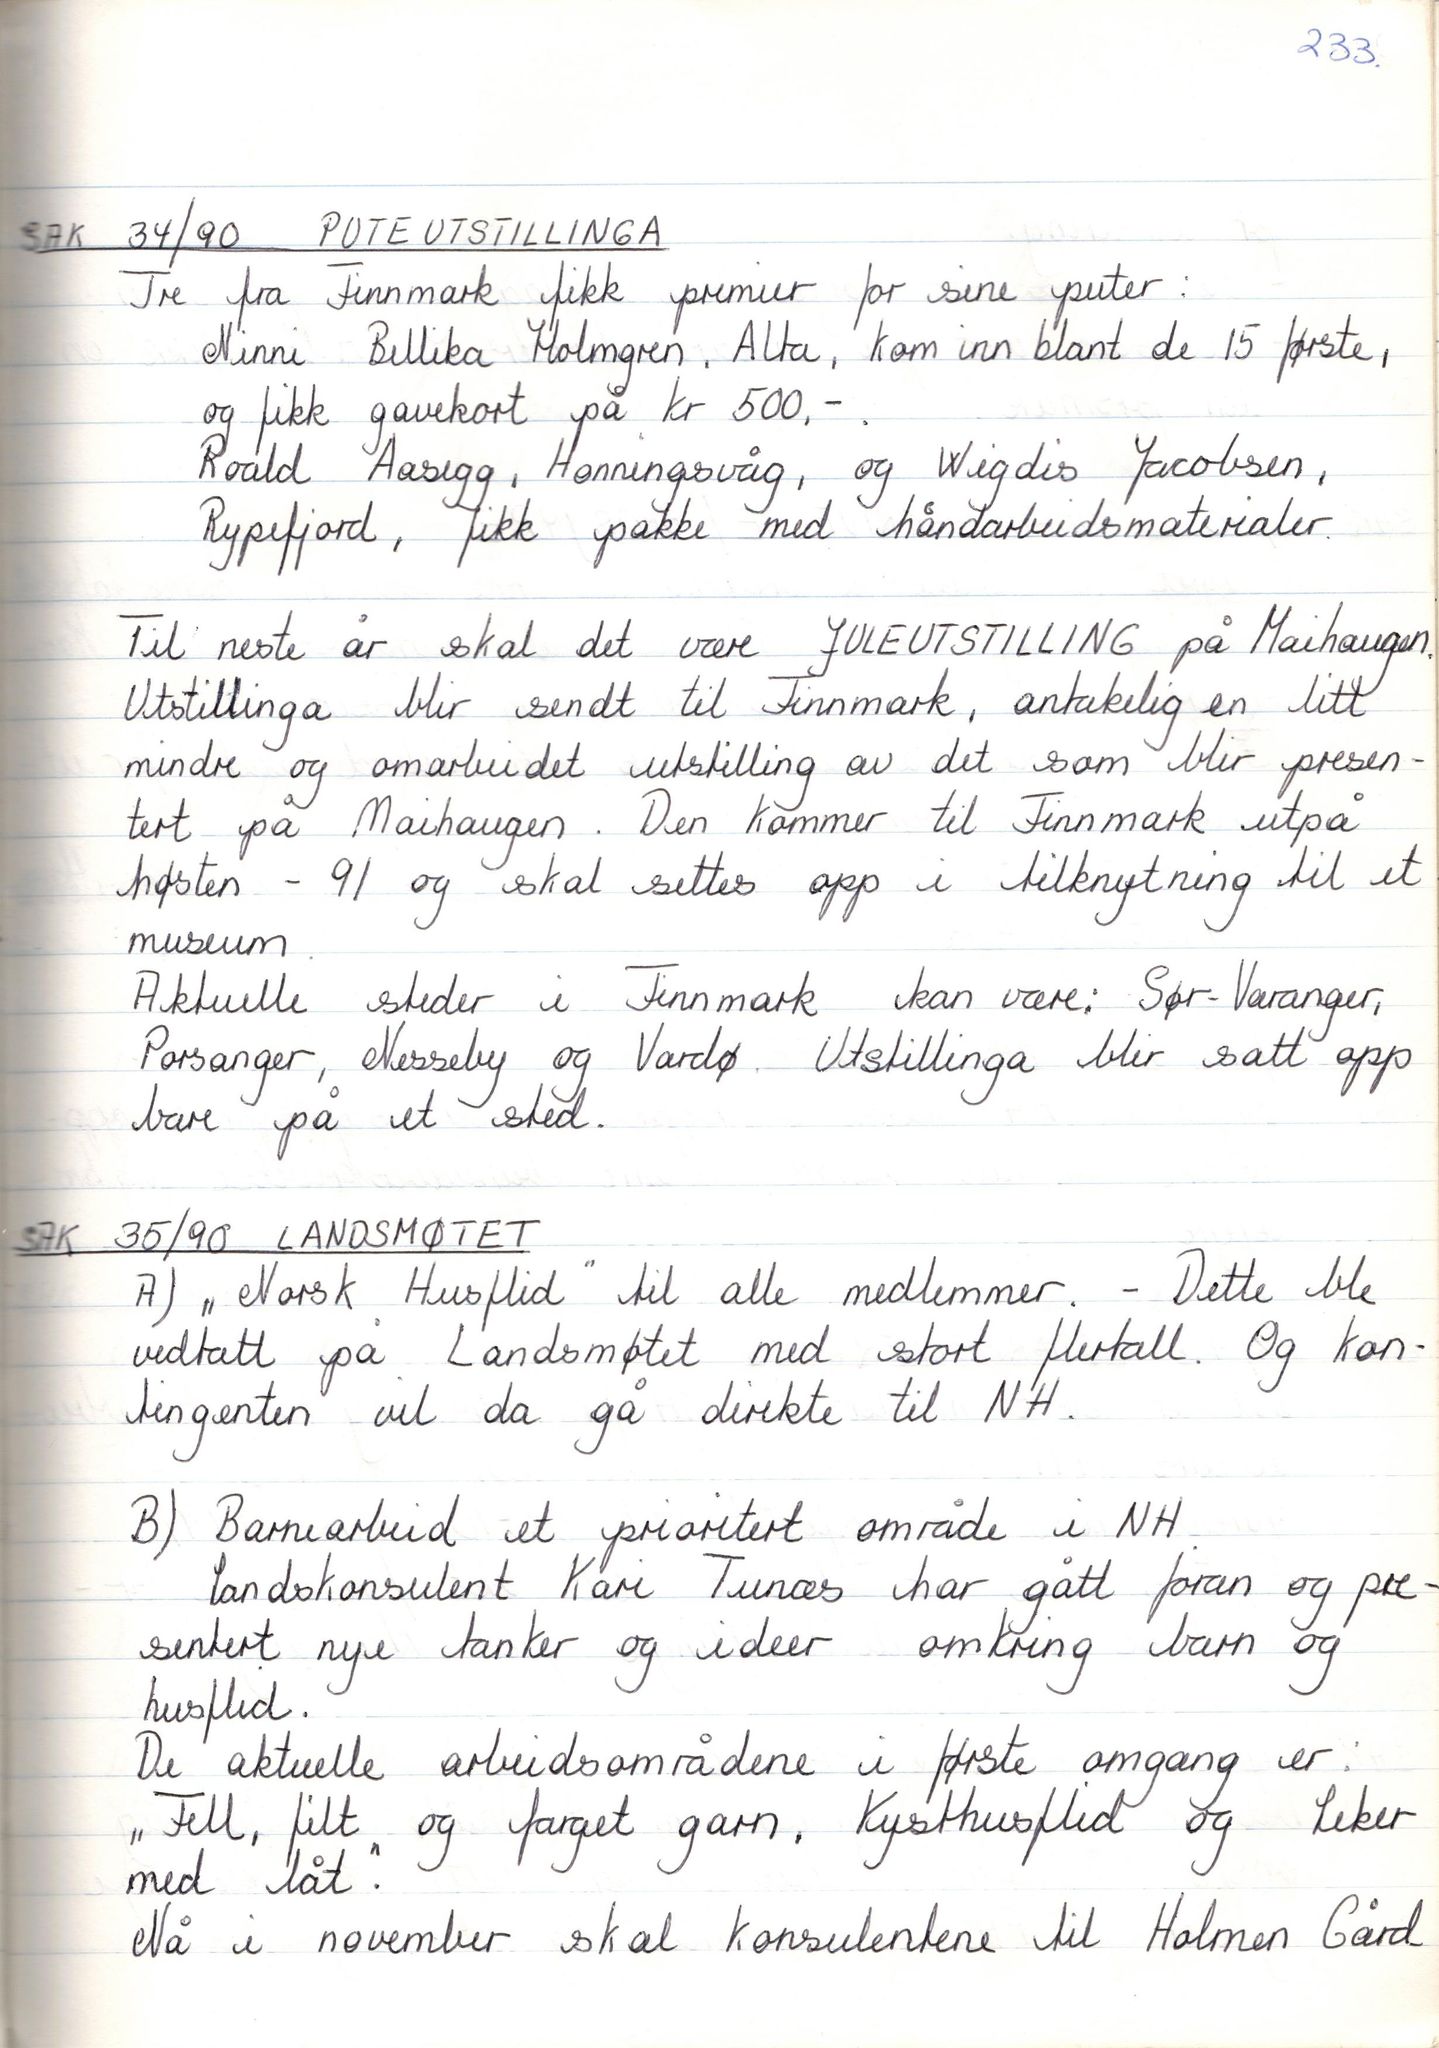 233.
SAK 34/90 PUTEUTSTILLINGA
Tre fra Finnmark fikk premier for sine puter:
Ninni Bellika Holmgren, Alta, kom inn blant de 15 første,
og fikk gavekort på kr 500,-.
Roald Aasegg, Honningsvåg, og Wigdis Jacobsen,
Rypefjord, fikk pakke med håndarbeidsmaterialer.
Til neste år skal det være JULEUTSTILLING på Maihaugen.
Utstillinga blir sendt til Finnmark, antakelig en litt
mindre og omarbeidet utstilling av det som blir presen-
tert på Maihaugen. Den kommer til Finnmark utpå
høsten - 91 og skal settes opp i tilknytning til et
museum.
Aktuelle steder i Finnmark kan være: Sør-Varanger,
Porsanger, Nesseby og Vardø. Utstillinga blir satt opp
bare på et sted.
SAK 35/90 LANDSMØTET
A) „Norsk Husflid" til alle medlemmer. - Dette ble
vedtatt på Landsmøtet med stort flertall. Og kon-
tingenten vil da gå direkte til NH.
B) Barnearbeid et prioritert område i NH.
Landskonsulent Kari Tunæs har gått foran og pre-
sentert nye tanker og ideer omkring barn og
husflid.
De aktuelle arbeidsområdene i første omgang er:
„Fell, filt og farget garn, Kysthusflid og Leker
med låt".
Nå i november skal konsulentene til Holmen Gård